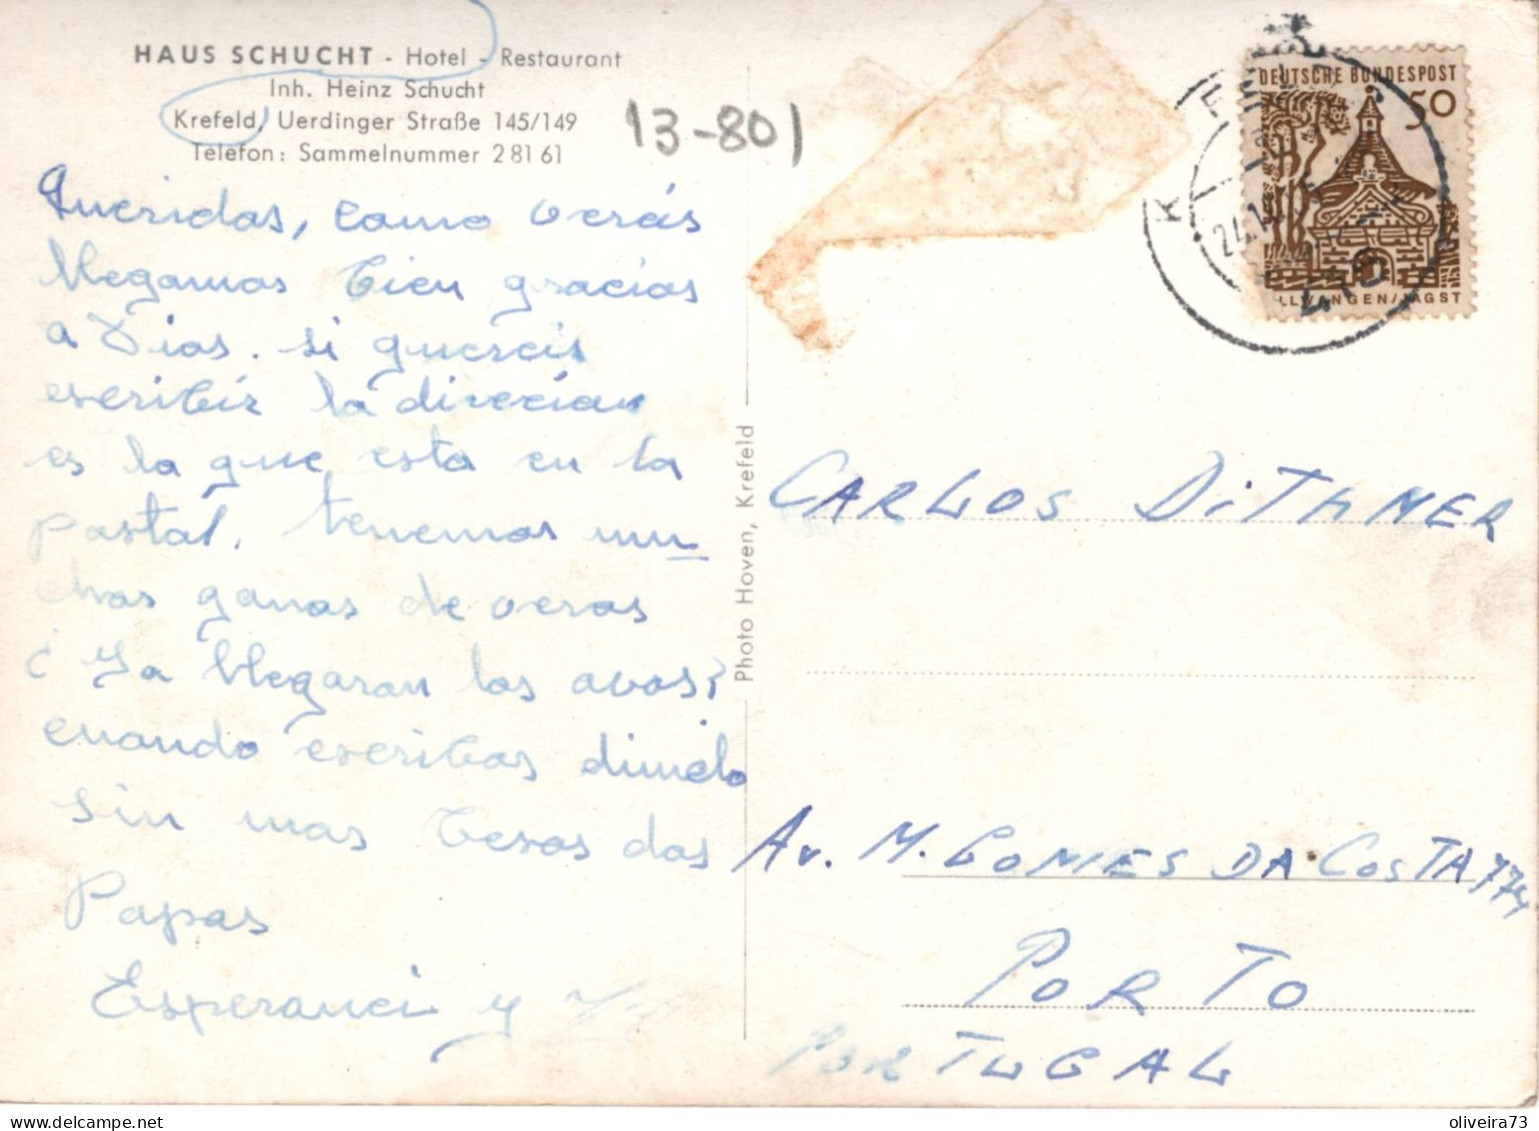 HAUS SCHUCHT - Hotel - Restaurant
Inh. Heinz Schucht
Krefeld, Uerdinger Straße 145/149
Telefon: Sammelnummer 2 81 61
13-801
Queridas, como verás
llegamos bien gracias
a Dios. si quereis
escribir la direcían
es la que esta en la
postal. tenemos mu
chas ganas de veros
¿Ya llegaran las avos?
cuando escribas dimelo
sin mas besos das
Papas
Esperanci y
Photo Hoven, Krefeld
DEUTSCHE BUNDESPOST
50
ELLWANGEN/JAGST
CARLOS DiTHMER
Av. M. GOMES DA COSTA 774
PORTO
PORTUGAL
oliveira73